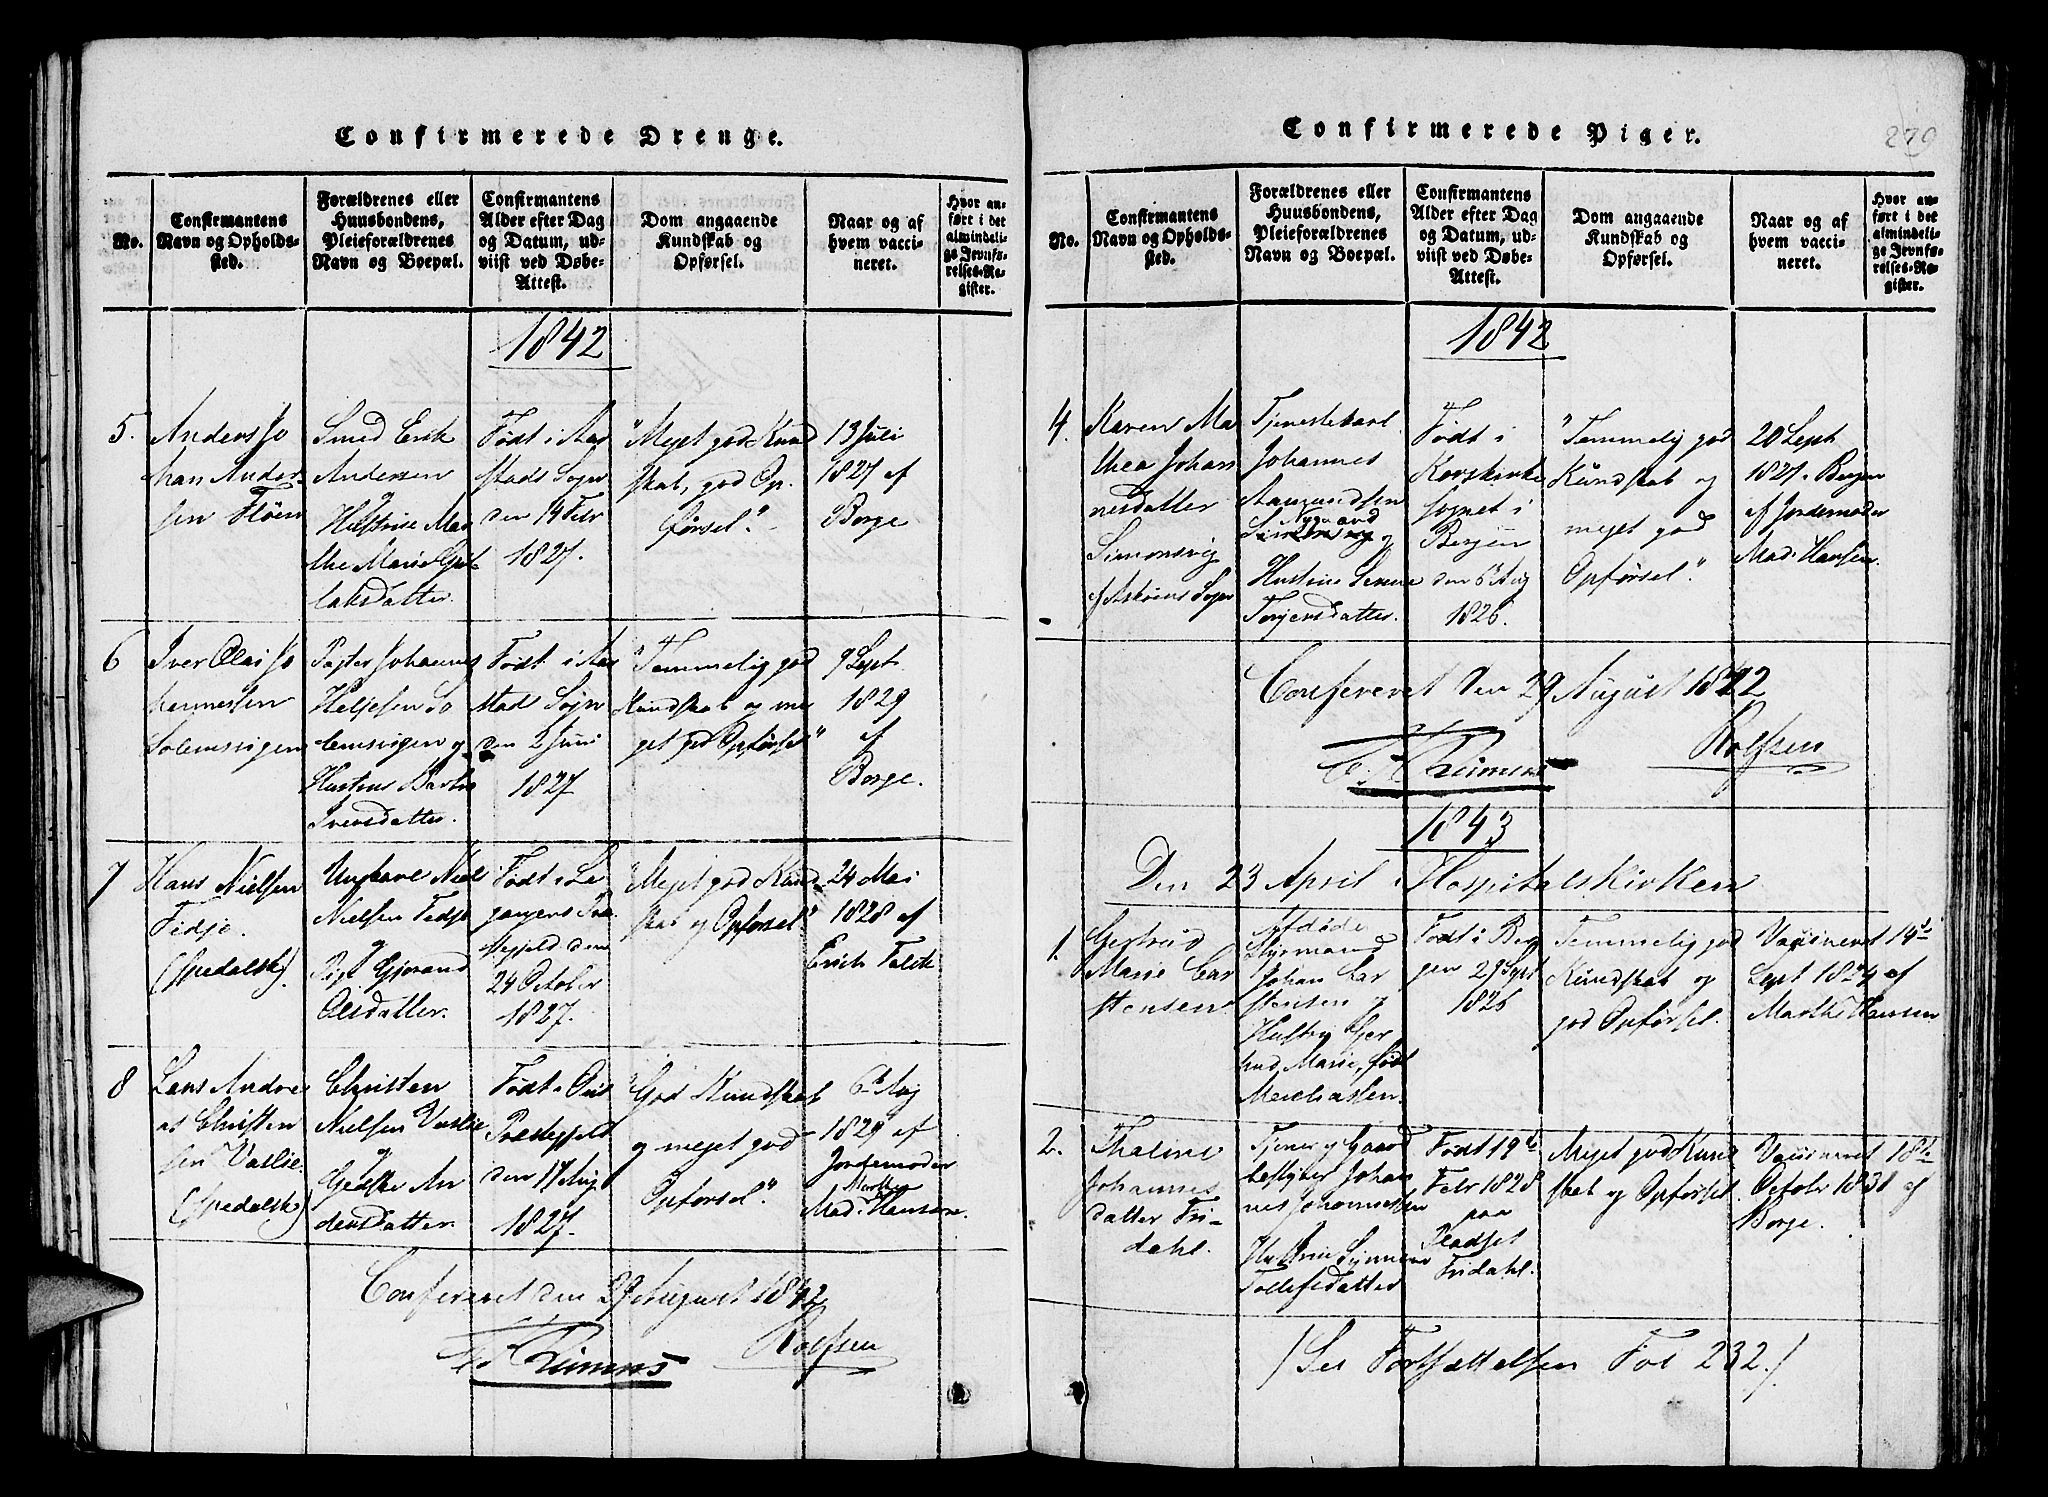 Confirmerede Drenge.
No.
Confirmantens
Navn og Opholds-
sted.
Forældrenes eller
Huusbondens,
Pleieforældrenes
Navn og Boepæl.
Confirmantens
Alder efter Dag
og Datum, ud-
viist ved Døbe-
Attest.
Dom angaaende
Kundskab og
Opførsel.
Naar og af
hvem vacci-
neret.
Hvor an-
ført i det
almindeli-
ge Jevnfø-
relses-Re-
gister.
1842
5.
Anders Jo
han Ander-
sen Fløen
Smed Erik
Andersen
Hustrue Mar
the Marie
Født i Aar
stads Sogn
den 14 Febr
1827.
"Meget god Kund
skab, god Op-
førsel."
13 Juli
1827 af
Borge
6
Iver Olai Jo
hannessen
Solemsvigen
Johannes
Heljesen So
lemsvigen og
Hustrue
Iversdatter
Født i Aar
stads Sogn
den 2 Juni
1827
"Temmelig god
Kundskab og me
get god Opførsel"
9 Sept
1829
af
Borge.
7
Hans Nielsen
Fedje.
(Spedalsk)
Ungkarl Niel
Nielsen Fedje
og
Pige Gjorand
Olsdatter.
Født i Le
gangers Præ
stegjeld den
24 October
1827.
"Meget god Kund
skab og Opførsel"
24 Mai
1828 af
Erich Falch
8
Lars Andre
as Christen
sen Vaslie.
(Spedalsk)
Christen
Nielsen Vaslie
og
An
dersdatter.
Født i
Præstegjeld
den 17 Aug
1827.
"God Kundskab
og meget god
Opførsel."
6te Aug
1829 af
Jordemoder
Marthe
Mad. Hansen.
Confereret den 29 August 1842
Rolfsen
Confirmerede Piger.
279
No.
Confirmantens
Navn og Opholds-
sted.
Forældrenes eller
Huusbondens,
Pleieforældrenes
Navn og Boepæl.
Confirmantens
Alder efter Dag
og Datum, ud-
viist ved Døbe-
Attest.
Dom angaaende
Kundskab og
Opførsel.
Naar og af
hvem vacci-
neret.
Hvor an-
ført i det
almindeli-
ge Jevnfø-
relses-Re-
gister.
1842
4.
Karen Ma
thea Johan
nesdatter
Simonsvig
af Askøens Sogn
Tjenestekarl
Johannes
Aamundsen
Nygaard
og
Hustrue Serine
Torgersdatter.
Født i
Korskirke
sognet i
Bergen
den 6te Aug
1826.
"Temmelig god
Kundskab og
meget god
Opførsel."
20 Sept
1827 i Bergen
af Jordemoder
Mad. Hansen.
Confereret den 29 August 1842
Rolfsen
1843
Den 23 April i Hospitalskirken
1.
Gertrud
Marie Car
stensen
Afdøde
Styrmand
Johan Car
stensen og
Hustru Ger
trud Marie, født
Født i Ber
gen 29 Sept
1826
Temmelig god
Kundskab og
god Opførsel.
Vaccineret 14de
Sept 1824 af
Marthe Hansen
2.
Thaline
Johannes
datter Fri-
dahl.
Tjener og Gaard
bestyrer Johan
nes Johannessen
Hustrue Synneve
Tollefsdatter
Født 19de
Febr 1828
paa
Pladset
Fridahl.
Meget god Kund
skab og Opførsel.
Vaccineret 18de
Octobr 1831 af
Borge.
/See Fortsættelsen Fol 232./